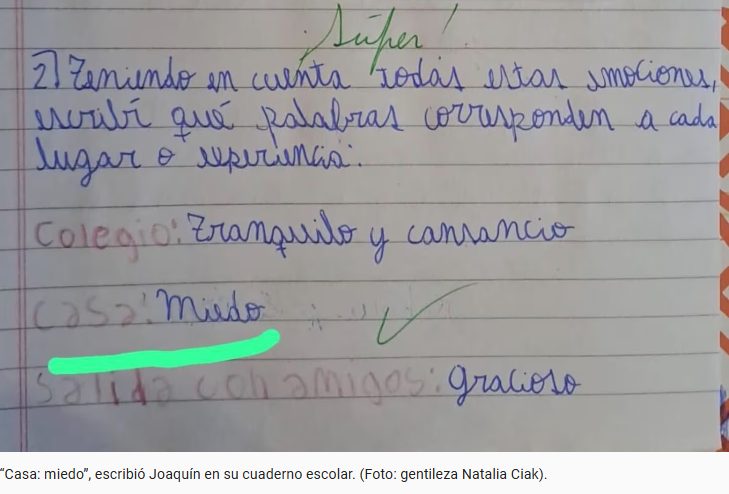 Súper!
2) Teniendo en cuenta todas estas emociones,
escribí qué palabras corresponden a cada
lugar o experiencia:
Colegio: Tranquilo y cansancio
Casa: Miedo
Salida con amigos: gracioso
“Casa: miedo”, escribió Joaquín en su cuaderno escolar. (Foto: gentileza Natalia Ciak).